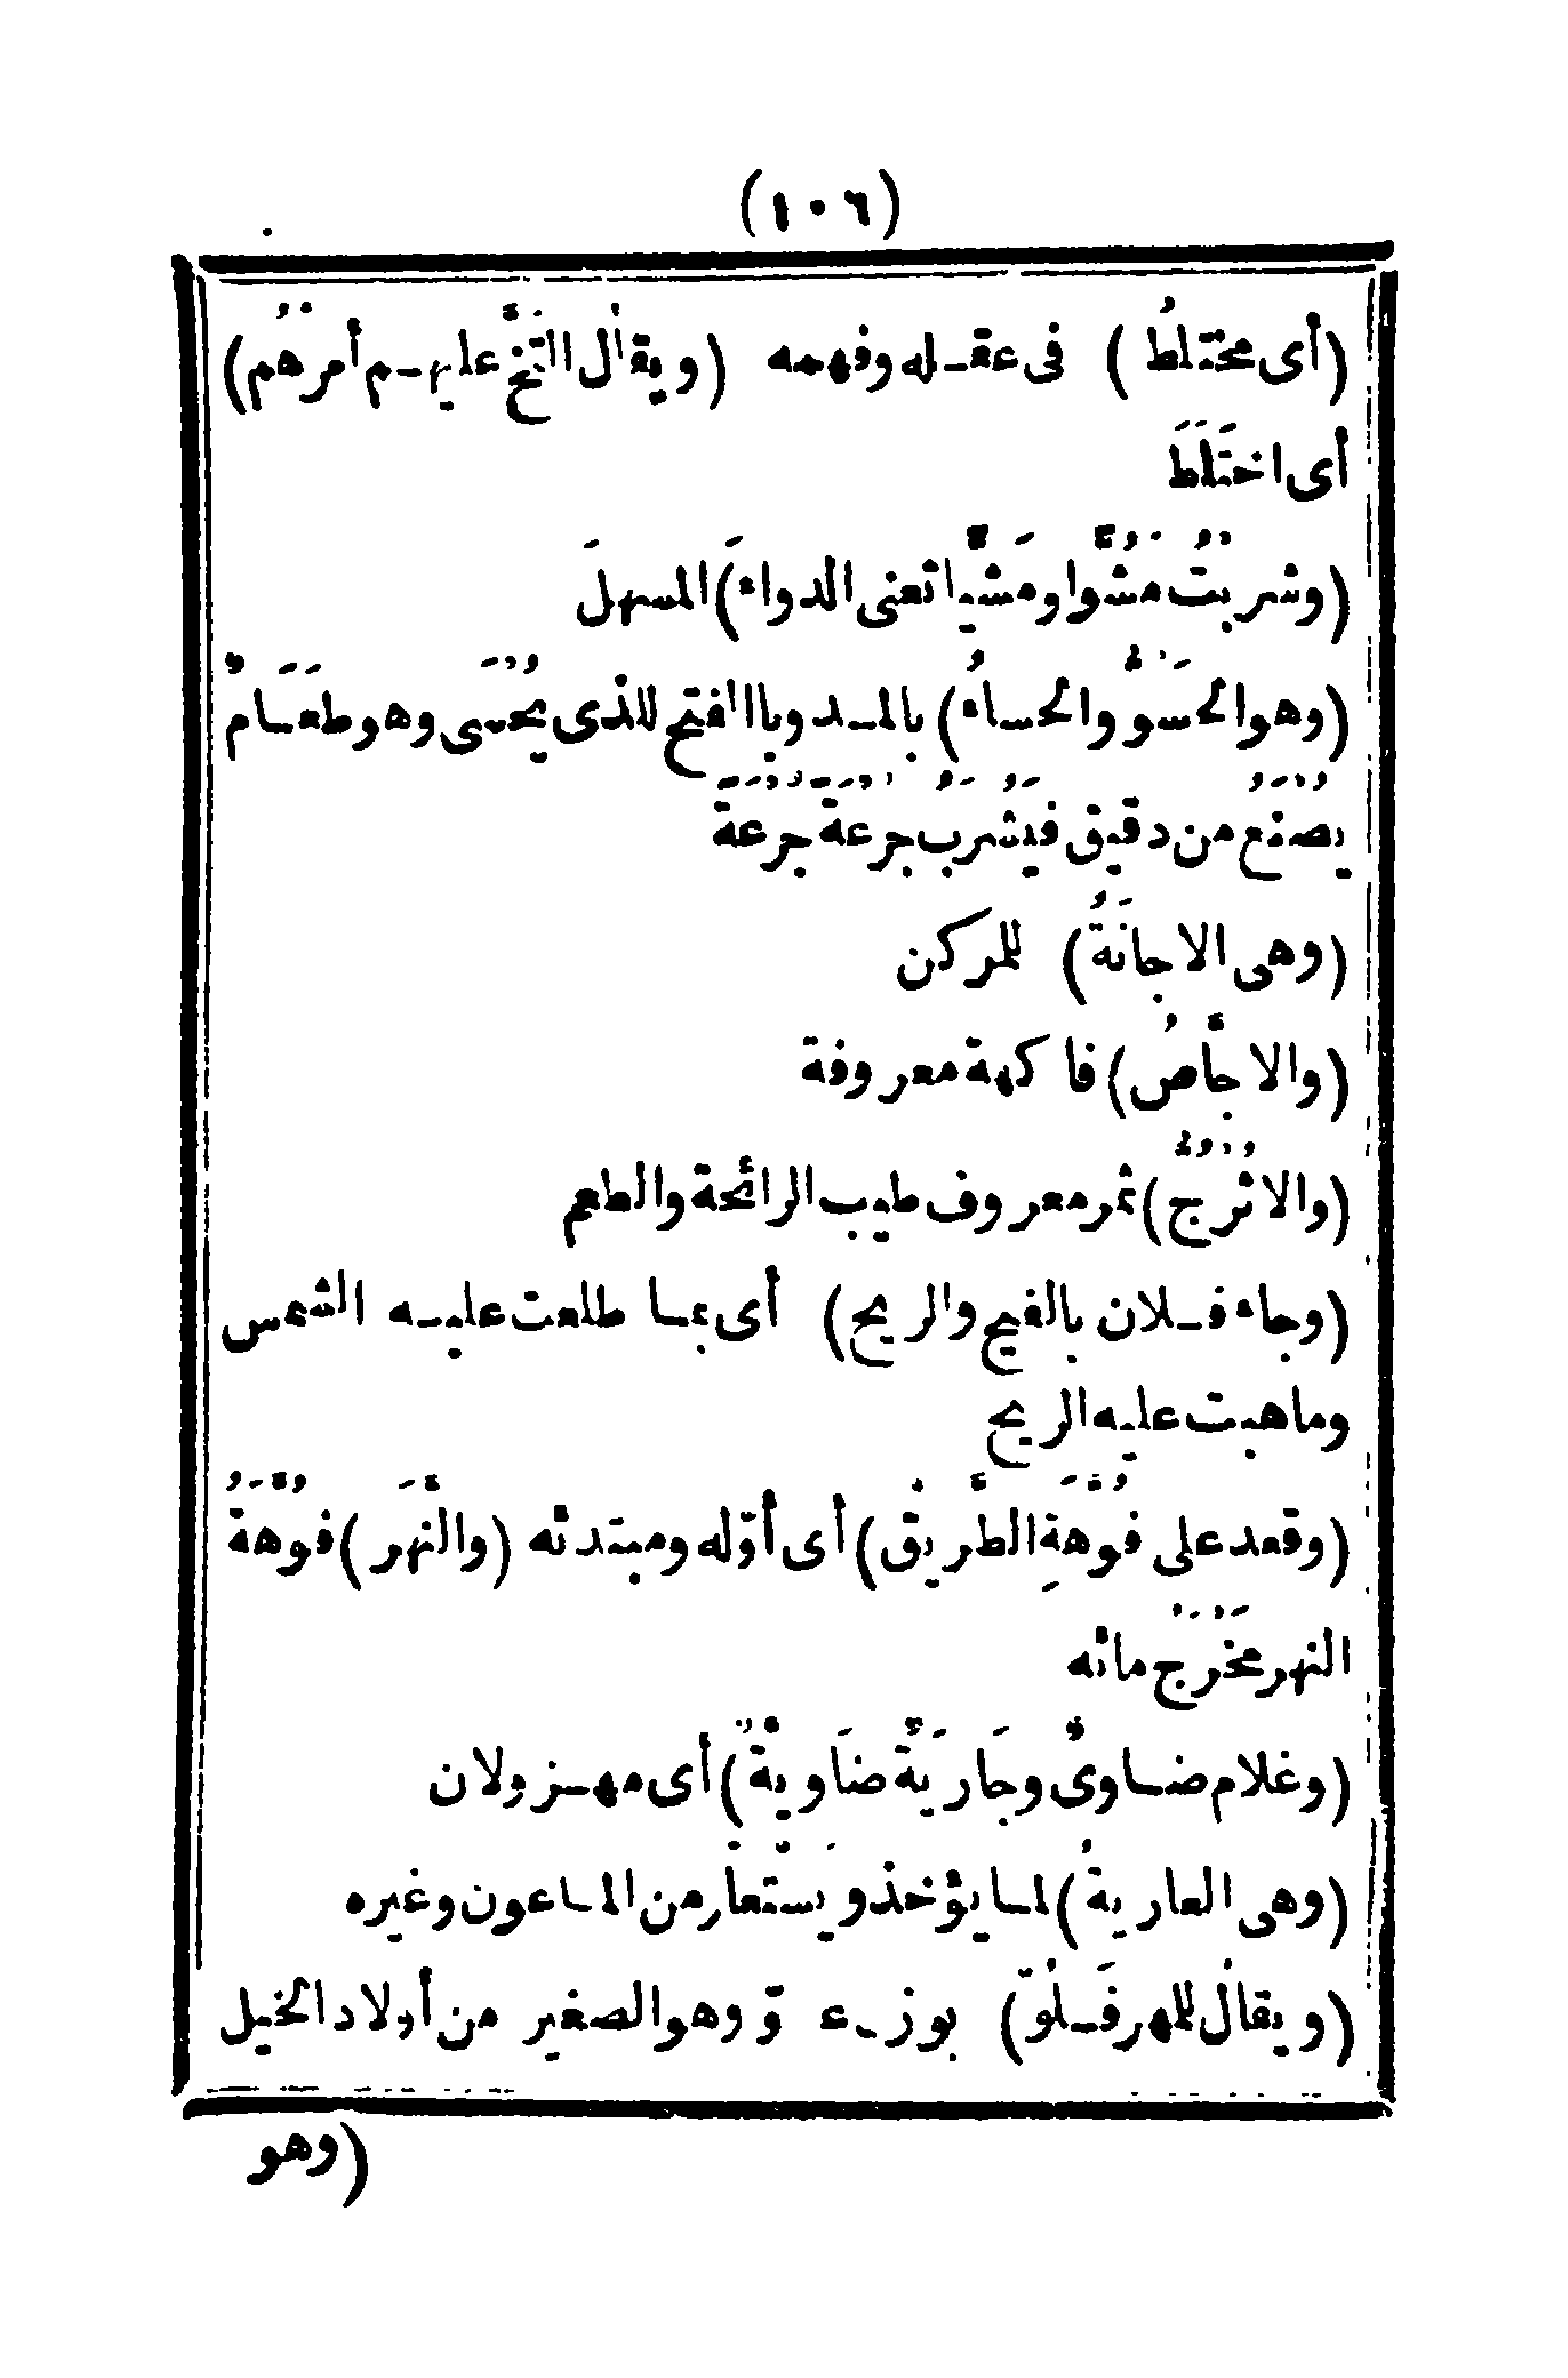 (١٠٦)
(أى مختلطُ) فى عقله وفهمه (ويقال التَخَّ عليهم أمرُهُم)
أى اختَلَطَ
(وشربتُ مَشُوًّا ومَشِيًّا تعنى الدواءَ) المسهلَ
(وهو الحَسُوُّ والحساءُ) بالمد وبالفتح للذى يُحْسَى وهو طَعَامٌ
يُصْنَعُ من دقيق فَيُشْرَبُ جُرْعَةً جُرْعَةً
(وهى الاجانَةُ) للمركن
(والاجَّاصُ) فاكهة معروفة
(والاتْرُجُّ) ثمر معروف طيب الرائحة والطعم
(وجاء فلان بالضح والريح) أى بما طلعت عليه الشمس
وما هبت عليه الريح
(وقعد على فُوَّهَةِ الطَّريق) أى أوّله ومبتدئه (والنَّهَر) فُوَّهَةُ
النهر مَخْرَج مائه
(وغلام ضاوىٌّ وجَارِيَةٌ ضَاوِيَّةٌ) أى مهزولان
(وهى العاريةُ) لما يؤخذ ويستَعار من الماعون وغيره
(ويقال للمهر فَلُوّ) بوزن عدوّ وهو الصغير من أولاد الخيل
(وهو